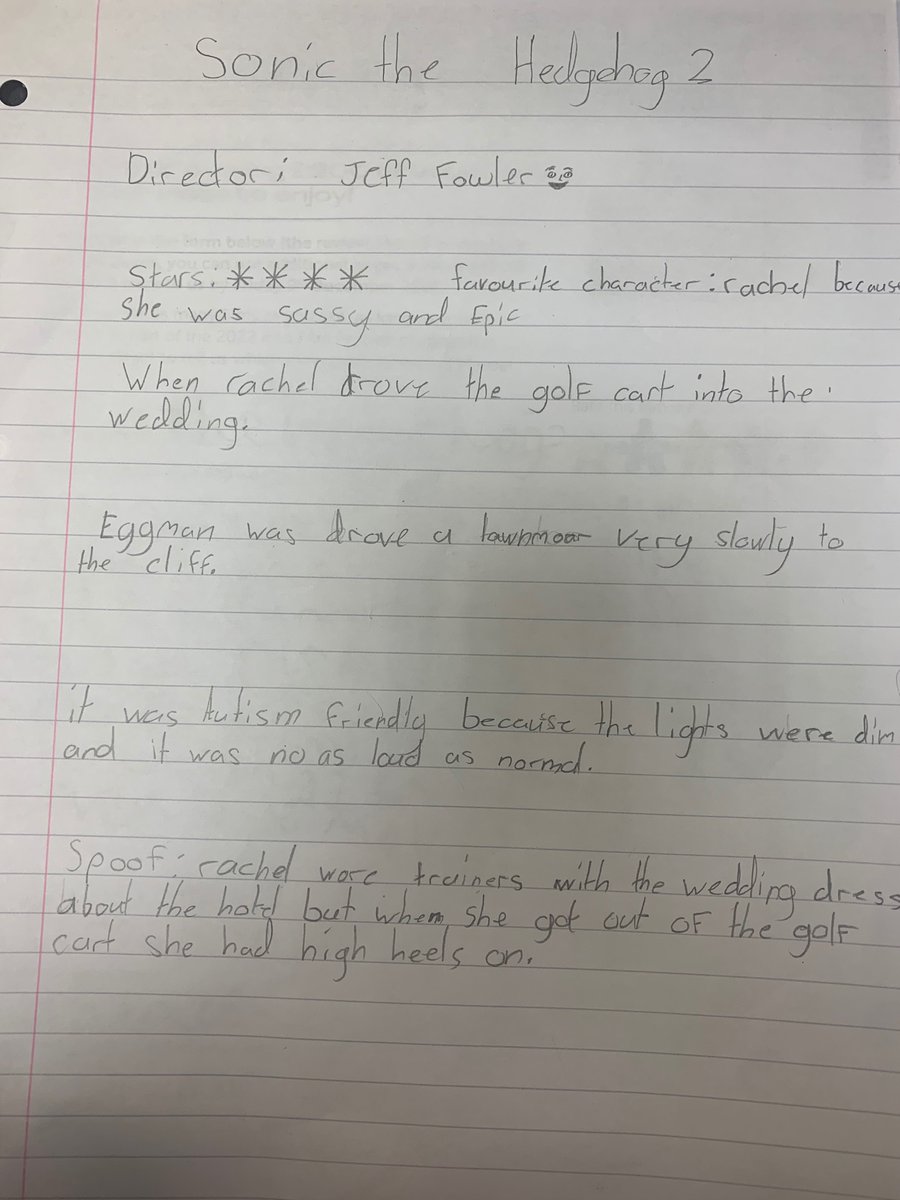 Sonic the Hedgehog 2
Director: Jeff Fowler
Stars: * * * * favourite character: rachel because
she was sassy and Epic
When rachel drove the golf cart into the
wedding.
Eggman was drove a lawnmoar very slowly to
the cliff.
it was Autism friendly because the lights were dim
and it was no as loud as normal.
Spoof: rachel wore trainers with the wedding dress
about the hotel but when she got out of the golf
cart she had high heels on.